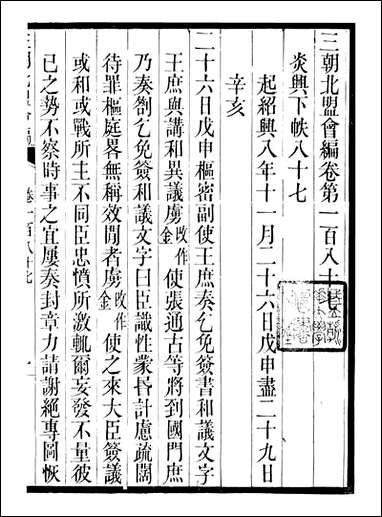 三朝北盟會編卷第一百八十
炎興下帙八十七
起紹興八年十一月二十六日戊申盡二十九日
辛亥
二十六日戊申樞密副使王庶奏乞免簽書和議文字
王庶與講和異議虜改作金使張通古等將到國門庶
乃奏劄乞免簽和議文字曰臣識性蒙昏計慮疏闊
待罪樞庭畧無稱效聞者虜改作金使之來大臣簽議
或和或戰所主不同臣忠憤所激輒爾妄發不量彼
己之勢不察時事之宜屢奏封章力請謝絕專圖恢
卷一百八十七